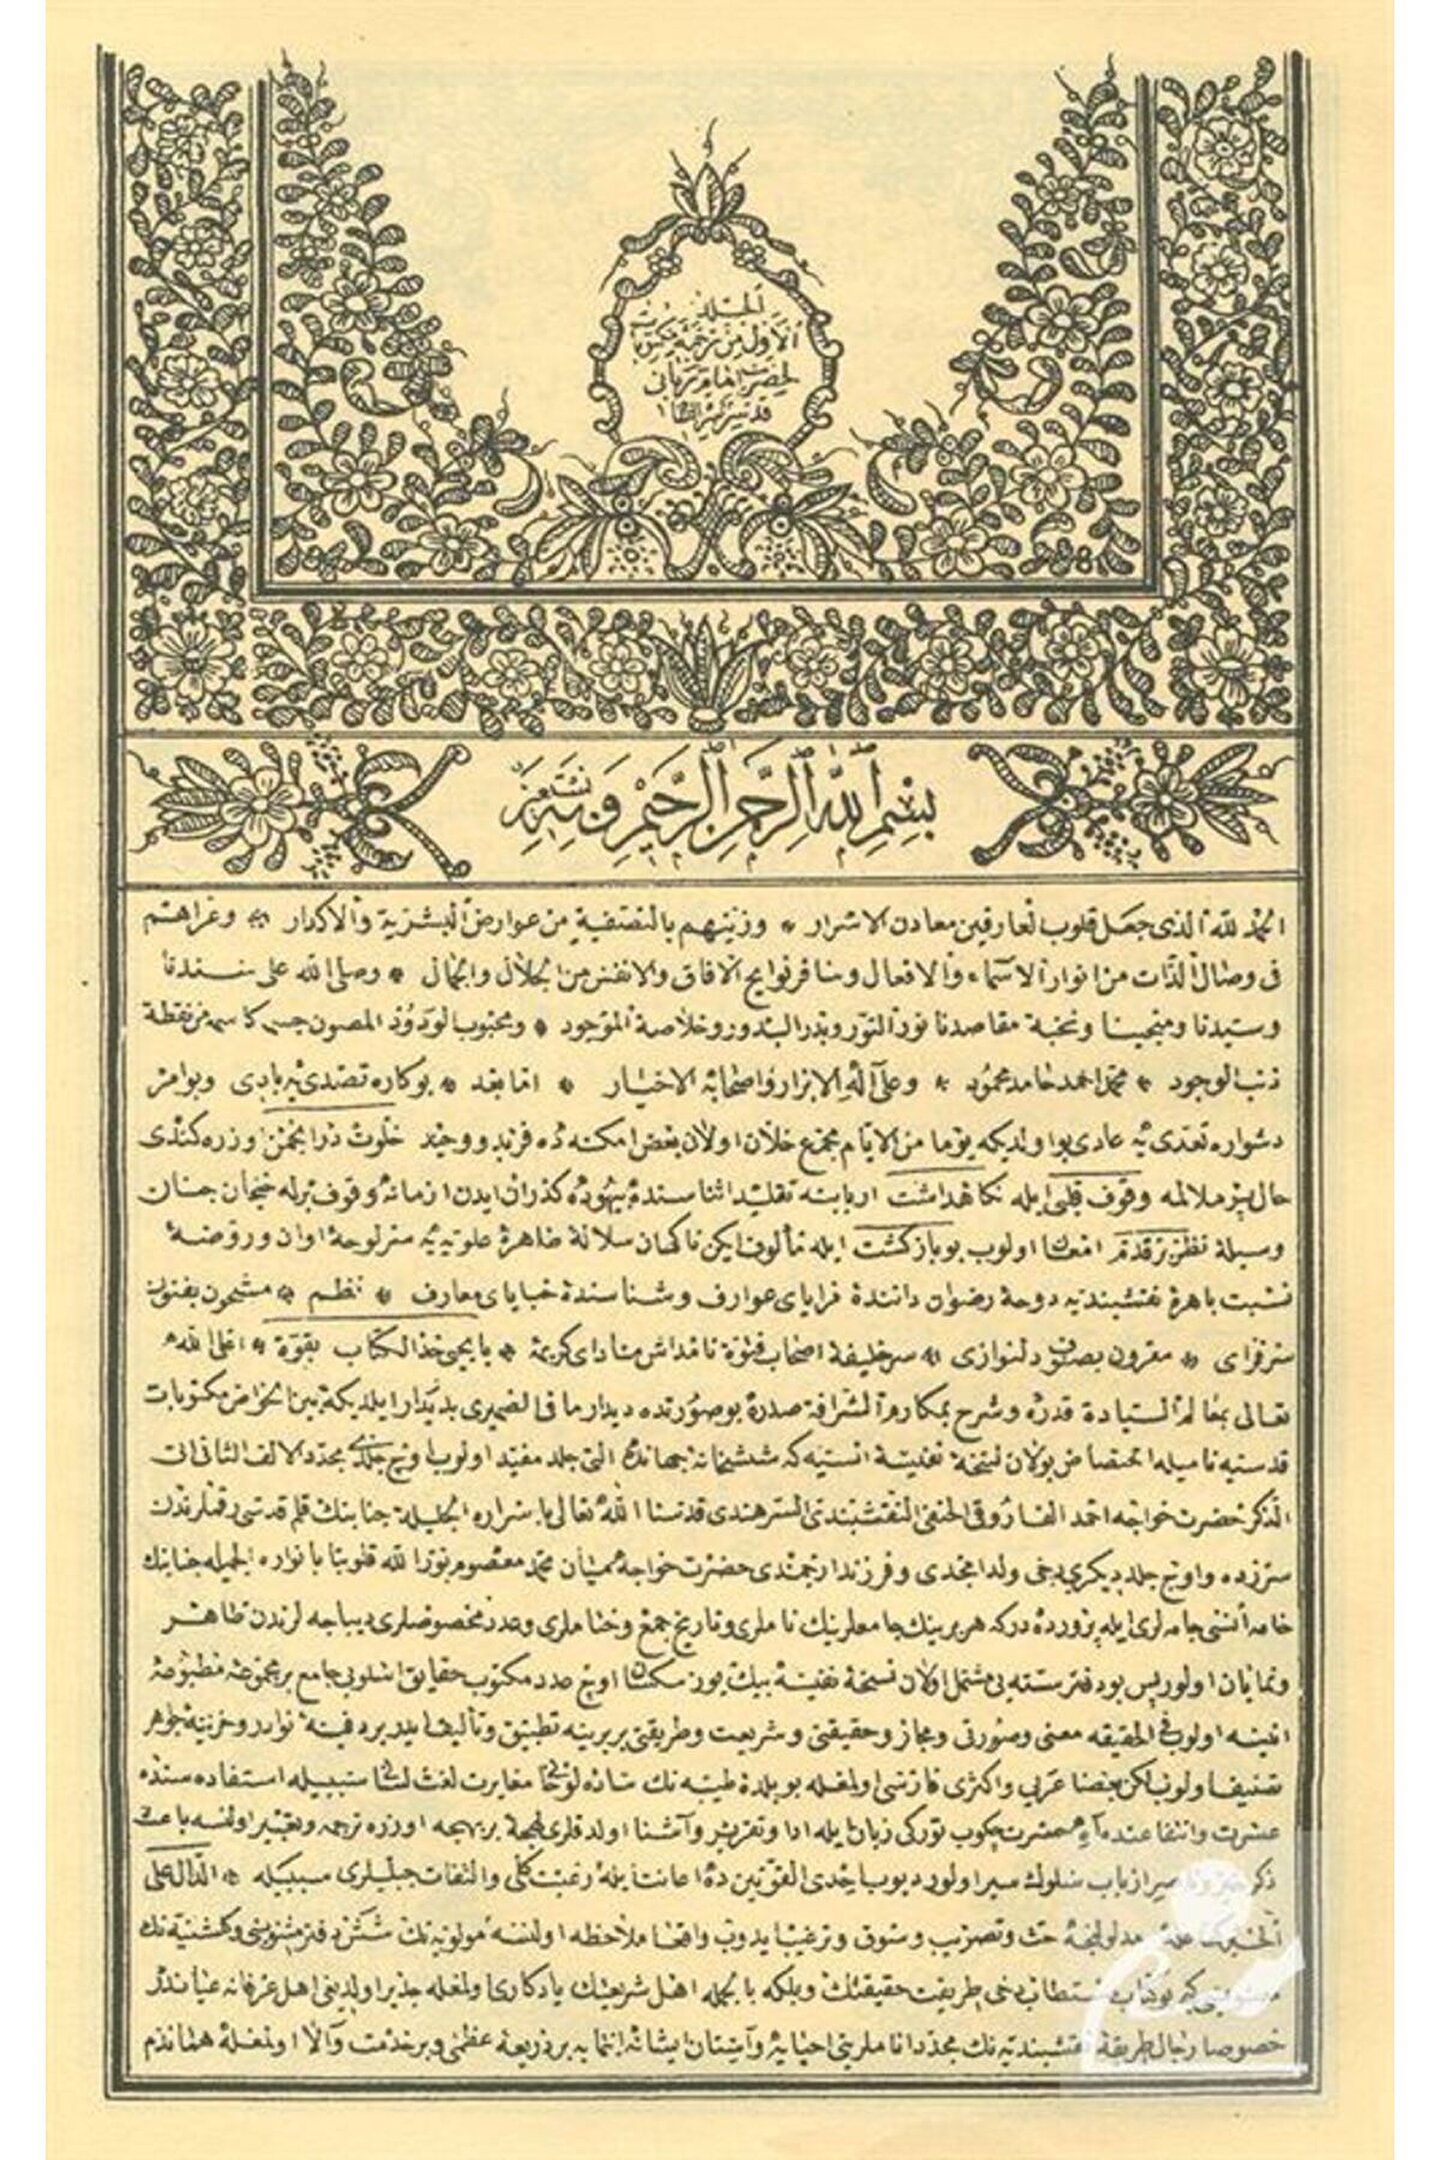 الجلد
الاول من ترجمة مكتوبات
لحضرت امام ربانی
قدس سره
بسم الله الرحمن الرحيم وبه نستعين
الحمد لله الذى جعل قلوب العارفين معادن الاسرار * وزينهم بالتصفية من عوارض البشرية والاكدار * وعراهم
فى وصال الذات من انوار الاسماء والافعال وسافر نوايح الافاق والانفس من الجلال والجمال * وصلى الله على سندنا
وسيدنا ومنجينا ونخبة مقاصدنا نور النور وبدر البدور وخلاصة الموجود * ومحبوب الودود المصون جسم من نقطة
ذنب الوجود * محمد احمد حامد محمود * وعلى آله الابرار واصحابه الاخيار * اما بعد * بو كاره تصدى يه بادى وبو امر
دشواره تعدى يه عادى بو اولديكه يوما من الايام مجمع خلان اولان بعض امكنه ده فريد ووحيد خلوت در انجمن اوزره كندى
حال پر ملالمه وقوف قلبى ايله نكاهداشت اربابنه تقليد اثناسنده بيهوده كذران ايدن ازمانه وقوف برله
وسيلۀ نظر بر قدم اولوب بو بازكشت ايله مألوف ايكن ناكهان سلالۀ طاهرۀ علويه يه سر لوحۀ اوان وروضۀ
نسبت باهرۀ نقشبنديه دوحۀ رضوان دانندۀ مزاياى عوارف وشناسندۀ خباياى معارف * نظم * مشحون بفنون
سرفرازى * مقرون بصنوف دلنوازى * سر خليفۀ اصحاب فتوة نامداش مناداى كريمۀ * يا يحيى خذ الكتاب بقوة * اعلى الله
تعالى بمعالم السيادة قدره وشرح بمكارم الشرافة صدره بو صورتده ديدار ما فى الضميرى بديدار ايلديكه بين الخواص مكتوبات
قدسيه ناميله اختصاص بولان نسخۀ نفيسۀ انسيه كه ششخانۀ جهانده التى جلد مفيد اولوب اوچ جلدى مجدد الالف الثانى
الذكر حضرت خواجه احمد الفاروقى الحنفى النقشبندى السرهندى قدسنا الله تعالى باسراره الجليله جنابنك قلم قدسى رقملرندن
سرزده واوچ جلد ديكرى دخى ولد امجدى وفرزند ارجمندى حضرت خواجۀ محمد معصوم نور الله قلوبنا بانواره الجميله جنابنك
خامۀ انسى جامه لرى ايله پرورده در كه هر برينك جامعلرينك ناملرى وتاريخ جمع وختاملرى وعدد مخصوصلرى ديباجه لرندن ظاهر
ونمايان اولور پس بو دفتر سته يى مشتمل اولان نسخۀ نفيسۀ اوچ عدد مكتوب حقايق اسلوبى جامع بر مجموعۀ مطبوعۀ
انيسه اولوب فى الحقيقه معنى وصورتى ومجاز وحقيقتى وشريعت وطريقتى بر برينه تطبيق وتأليف ايدر بر دفينۀ نوادر وخزينۀ جواهر
تصنيف اولوب لكن بعضا عربى واكثرى فارسى اولمغله بو بلدۀ طيبه نك مغايرت لغت لسانى سببيله استفاده سنده
عشرت وانتفاعنده حضرت چكوب توركى زبان ايله ادا وتقرير وآشنا اولدقلرى لهجۀ بر بهجه اوزره ترجمه وتعبير اولنسه باعث
ذكر ارباب سلوك سير اولور ديو ياخدى القوتين ده اعانت ايله رغبت كلى والتفات جبليلرى سببيله * الدال على
الخير مدلولنجه حث وتضريب وسوق وترغيب ايدوب واقعا ملاحظه اولنسه مولويه نك شش دفتر مثنويسى وكلشنيه نك
معنويسى كبى بو كتاب مستطاب دخى طريقت حقيقتنك وبلكه بالجمله اهل شريعتك يادكارى اولمغله جدير اولديغى اهل عرفانه عياندر
خصوصا رجال طريقۀ نقشبنديه نك مجدد اناملريى احيا يه وآستان ايشانه انتمايه بر ذريعۀ عظمى وبر خدمت والا اولمغله هماندم